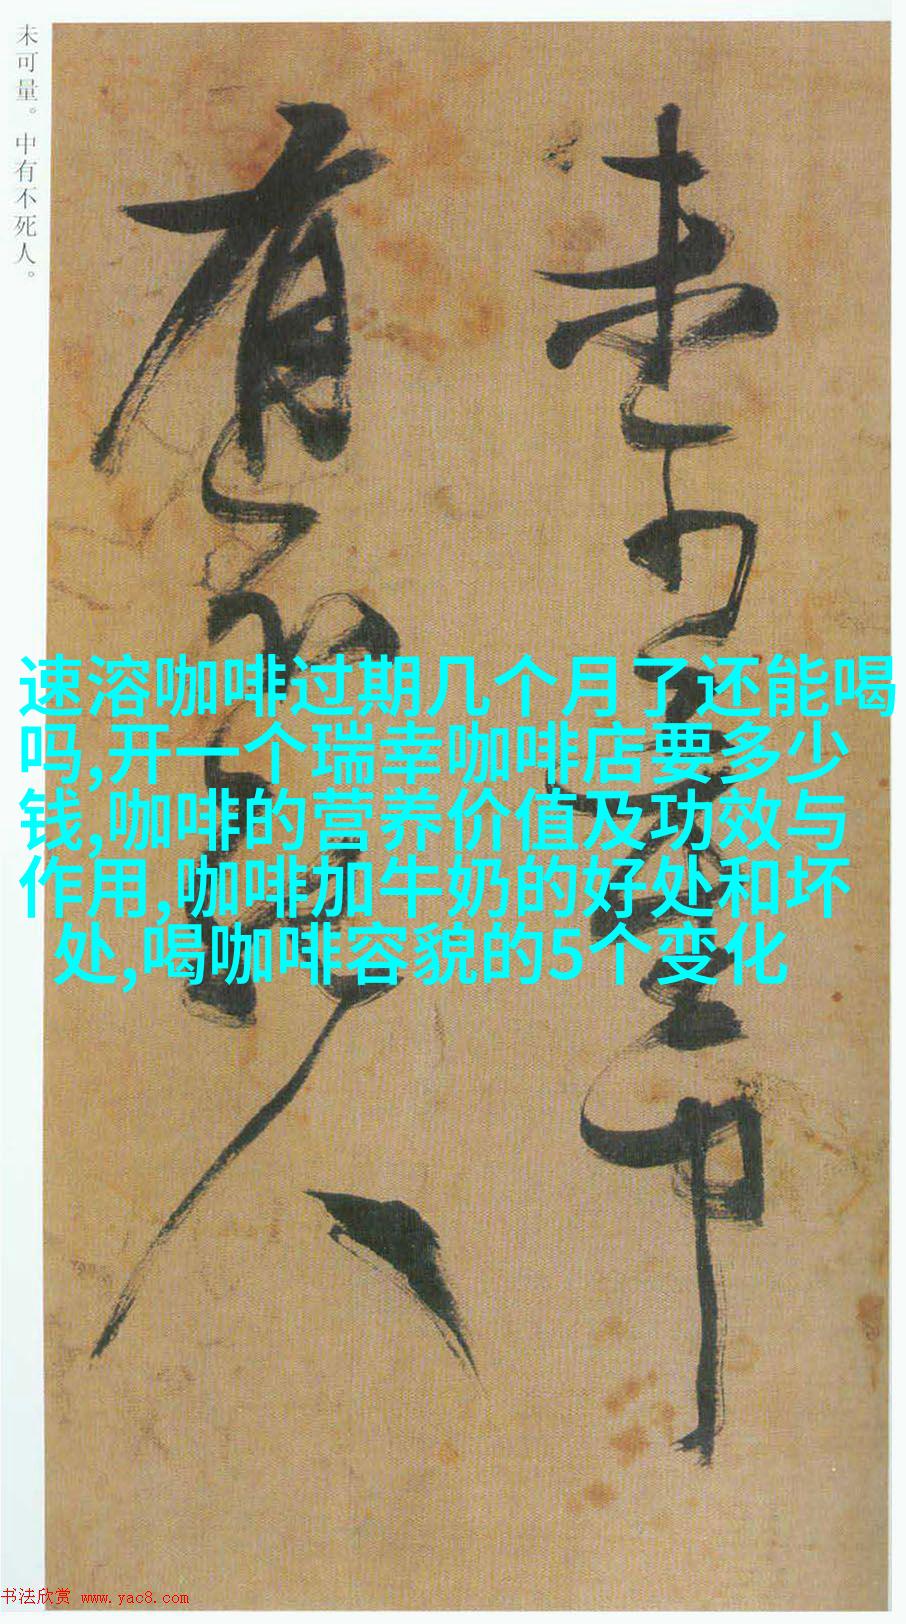 未可量。中有不死人。
未可量中
有不死人
速溶咖啡过期几个月了还能喝
吗,开一个瑞幸咖啡店要多少
钱,咖啡的营养价值及功效与
作用,咖啡加牛奶的好处和坏
处,喝咖啡容貌的5个变化
书法欣赏 www.yac8.com